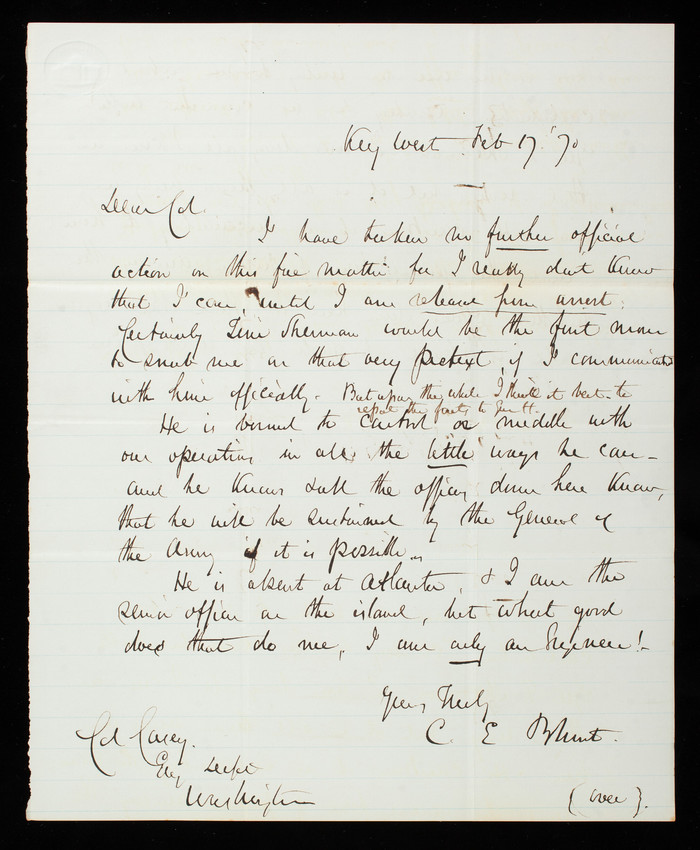 Key West Feb 17 '70
Dear Col.
I have taken no further official
action on this fire matter for I really dont know
that I can, until I am release from arrest.
Certainly Tim Sherman would be the first man
to snub me on that very pretext, if I communicated
with him officially. But upon the whole I think it best to
repot the facts to Gen H.
He is bound to control or meddle with
our operations in all the little ways he can -
and he knows & all the officers down here know,
that he will be sustained by the General of
the Army if it is possible.
He is absent at Atlanta, & I am the
senior officer on the island, but what good
does that do me, I am only an Engineer! -
Yours Truly
C. E. Blunt.
Col Casey.
Eng Dept
Washington
(over).